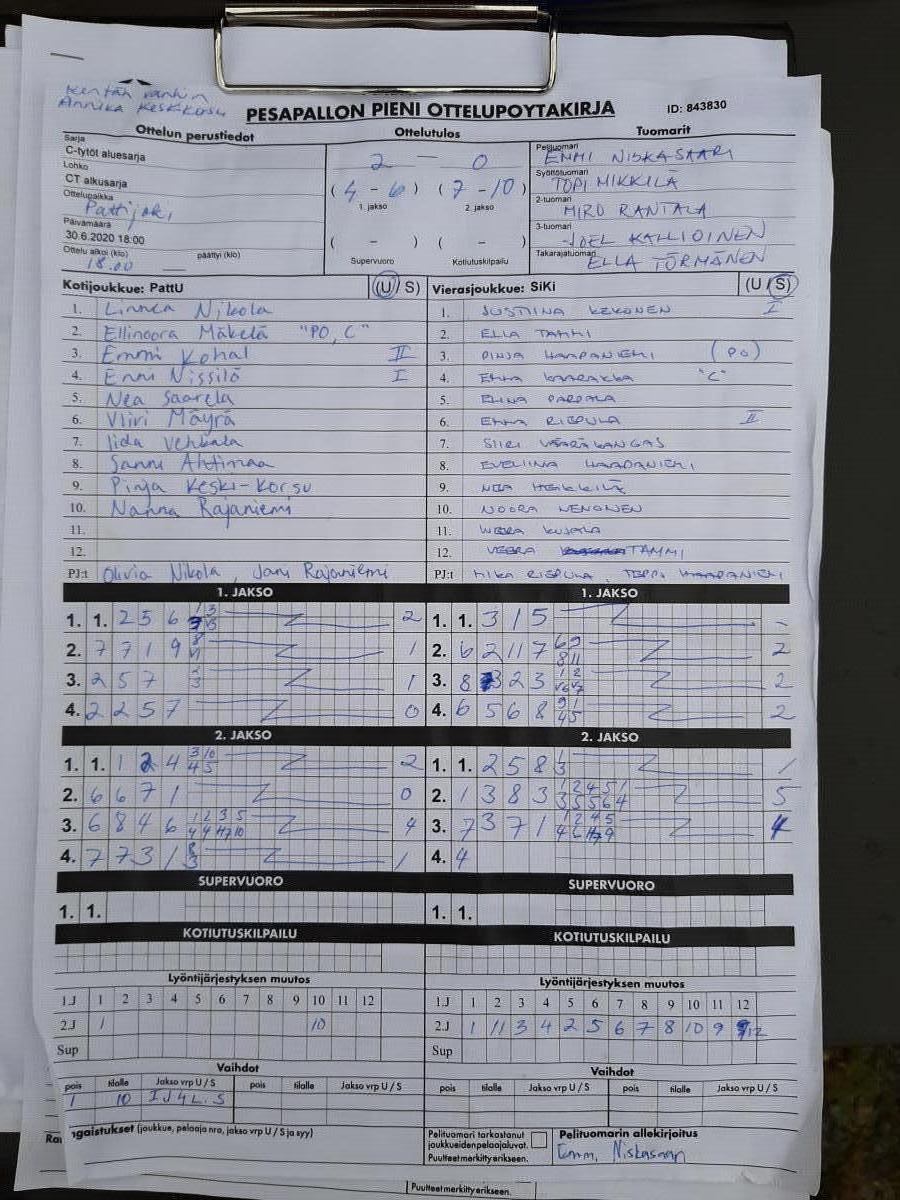 Kentän vanhin
Annika Keskikorsu
PESÄPALLON PIENI OTTELUPÖYTÄKIRJA
ID: 843830
Ottelun perustiedot
Sarja
C-tytöt aluesarja
Lohko
CT alkusarja
Ottelupaikka
Pattijoki
Päivämäärä
30.6.2020 18:00
Ottelu alkoi (klo) päättyi (klo)
18.00
Ottelutulos
2 — 0
(4 - 6) (7 - 10)
1. jakso 2. jakso
( - ) ( - )
Supervuoro Kotiutuskilpailu
Tuomarit
Pelituomari
EMMI NISKASAARI
Syöttötuomari
TOPI MIKKILÄ
2-tuomari
MIRO RANTALA
3-tuomari
JOEL KALLIOINEN
Takarajatuomari
ELLA TÖRMÄNEN
Kotijoukkue: PattU (U/ S)
1. Linnea Nikola
2. Ellinoora Mäkelä "PO, C"
3. Emmi Kohal II
4. Enni Nissilä I
5. Nea Saarela
6. Vliri Mäyrä
7. Iida
8. Sanni Ahtimaa
9. Pinja Keski-Korsu
10. Nanna Rajaniemi
11.
12.
PJ:t Olivia Nikola, Jani Rajaniemi
Vierasjoukkue: SiKi (U / S)
1. JUSTIINA KEKONEN I
2. ELLA TAMMI
3. PINJA HAAPANIEMI (PO)
4. EMMA "C"
5. ELINA PARPALA
6. EMMA RIEPULA II
7. SIIRI VÄÄRÄKANGAS
8. EVELIINA HAAPANIEMI
9. NEA HEIKKILÄ
10. NOORA NENONEN
11. WEERA KUJALA
12. VEERA TAMMI
PJ:t MIKA RIEPULA, TEPPO HAAPANIEMI
1. JAKSO
1. 1. 2 5 6 2
2. 7 7 1 9 1
3. 2 5 7 2 3 1
4. 2 2 5 7 0
1. JAKSO
1. 1. 3 1 5 -
2. 6 2 11 7 2
3. 8 2 3 2
4. 6 5 6 8 2
2. JAKSO
1. 1. 1 2 4 3 10 4 5 2
2. 6 6 7 1 0
3. 6 8 4 6 1 2 3 5 4
4. 7 7 3 1 8 3 1
2. JAKSO
1. 1. 2 5 8 1 3 1
2. 1 3 8 3 1 2 4 5 1 5
3. 7 3 7 1 1 2 4 5 4
4. 4
SUPERVUORO
1. 1.
SUPERVUORO
1. 1.
KOTIUTUSKILPAILU
KOTIUTUSKILPAILU
Lyöntijärjestyksen muutos
1.J 1 2 3 4 5 6 7 8 9 10 11 12
2.J 1 10
Sup
Lyöntijärjestyksen muutos
1.J 1 2 3 4 5 6 7 8 9 10 11 12
2.J 1 11 3 4 2 5 6 7 8 10 9 12
Sup
Vaihdot
pois tilalle Jakso vrp U / S pois tilalle Jakso vrp U / S
1 10 I J 4 L. S
Vaihdot
pois tilalle Jakso vrp U / S pois tilalle Jakso vrp U / S
ngaistukset (joukkue, pelaaja nro, jakso vrp U / S ja syy)
Pelituomari tarkastanut
joukkueiden pelaajaluvat.
Puutteet merkitty erikseen.
Pelituomarin allekirjoitus
Emmi Niskasaari
Puutteet merkitty erikseen.